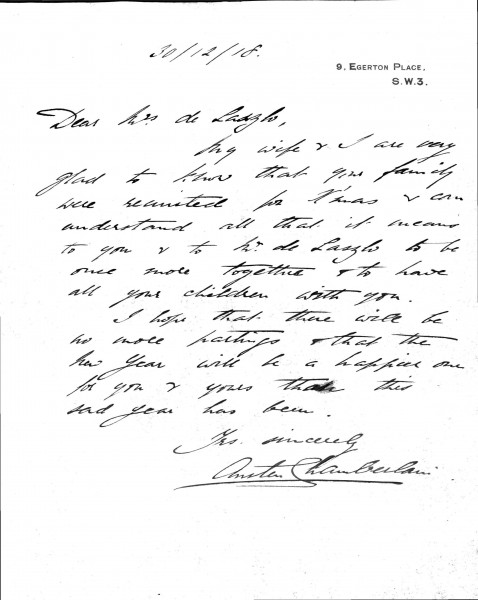 30/12/18.
9. EGERTON PLACE,
S.W.3.
Dear Mrs de Laszlo,
My wife & I are very
glad to know that your family
were reunited for X'mas & can
understand all that it means
to you & to Mr. de Laszlo to be
once more together & to have
all your children with you.
I hope that there will be
no more partings & that the
New Year will be a happier one
for you & yours than this
sad year has been.
Yrs. sincerely
Austen Chamberlain